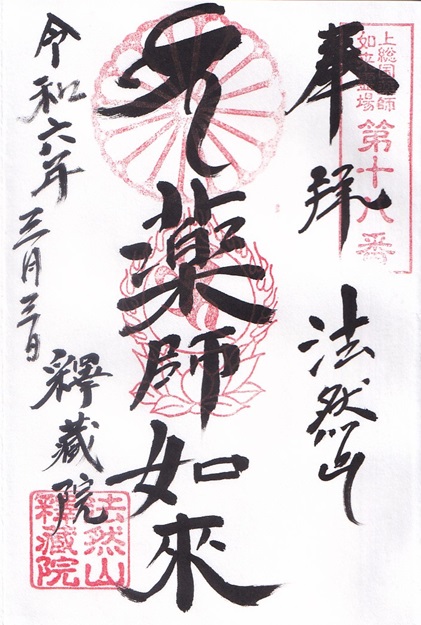 上総国薬師
如来霊場
第十八番
奉拝
法然山
薬師如來
令和六年
三月三日
釋藏院
法然山
釋藏院